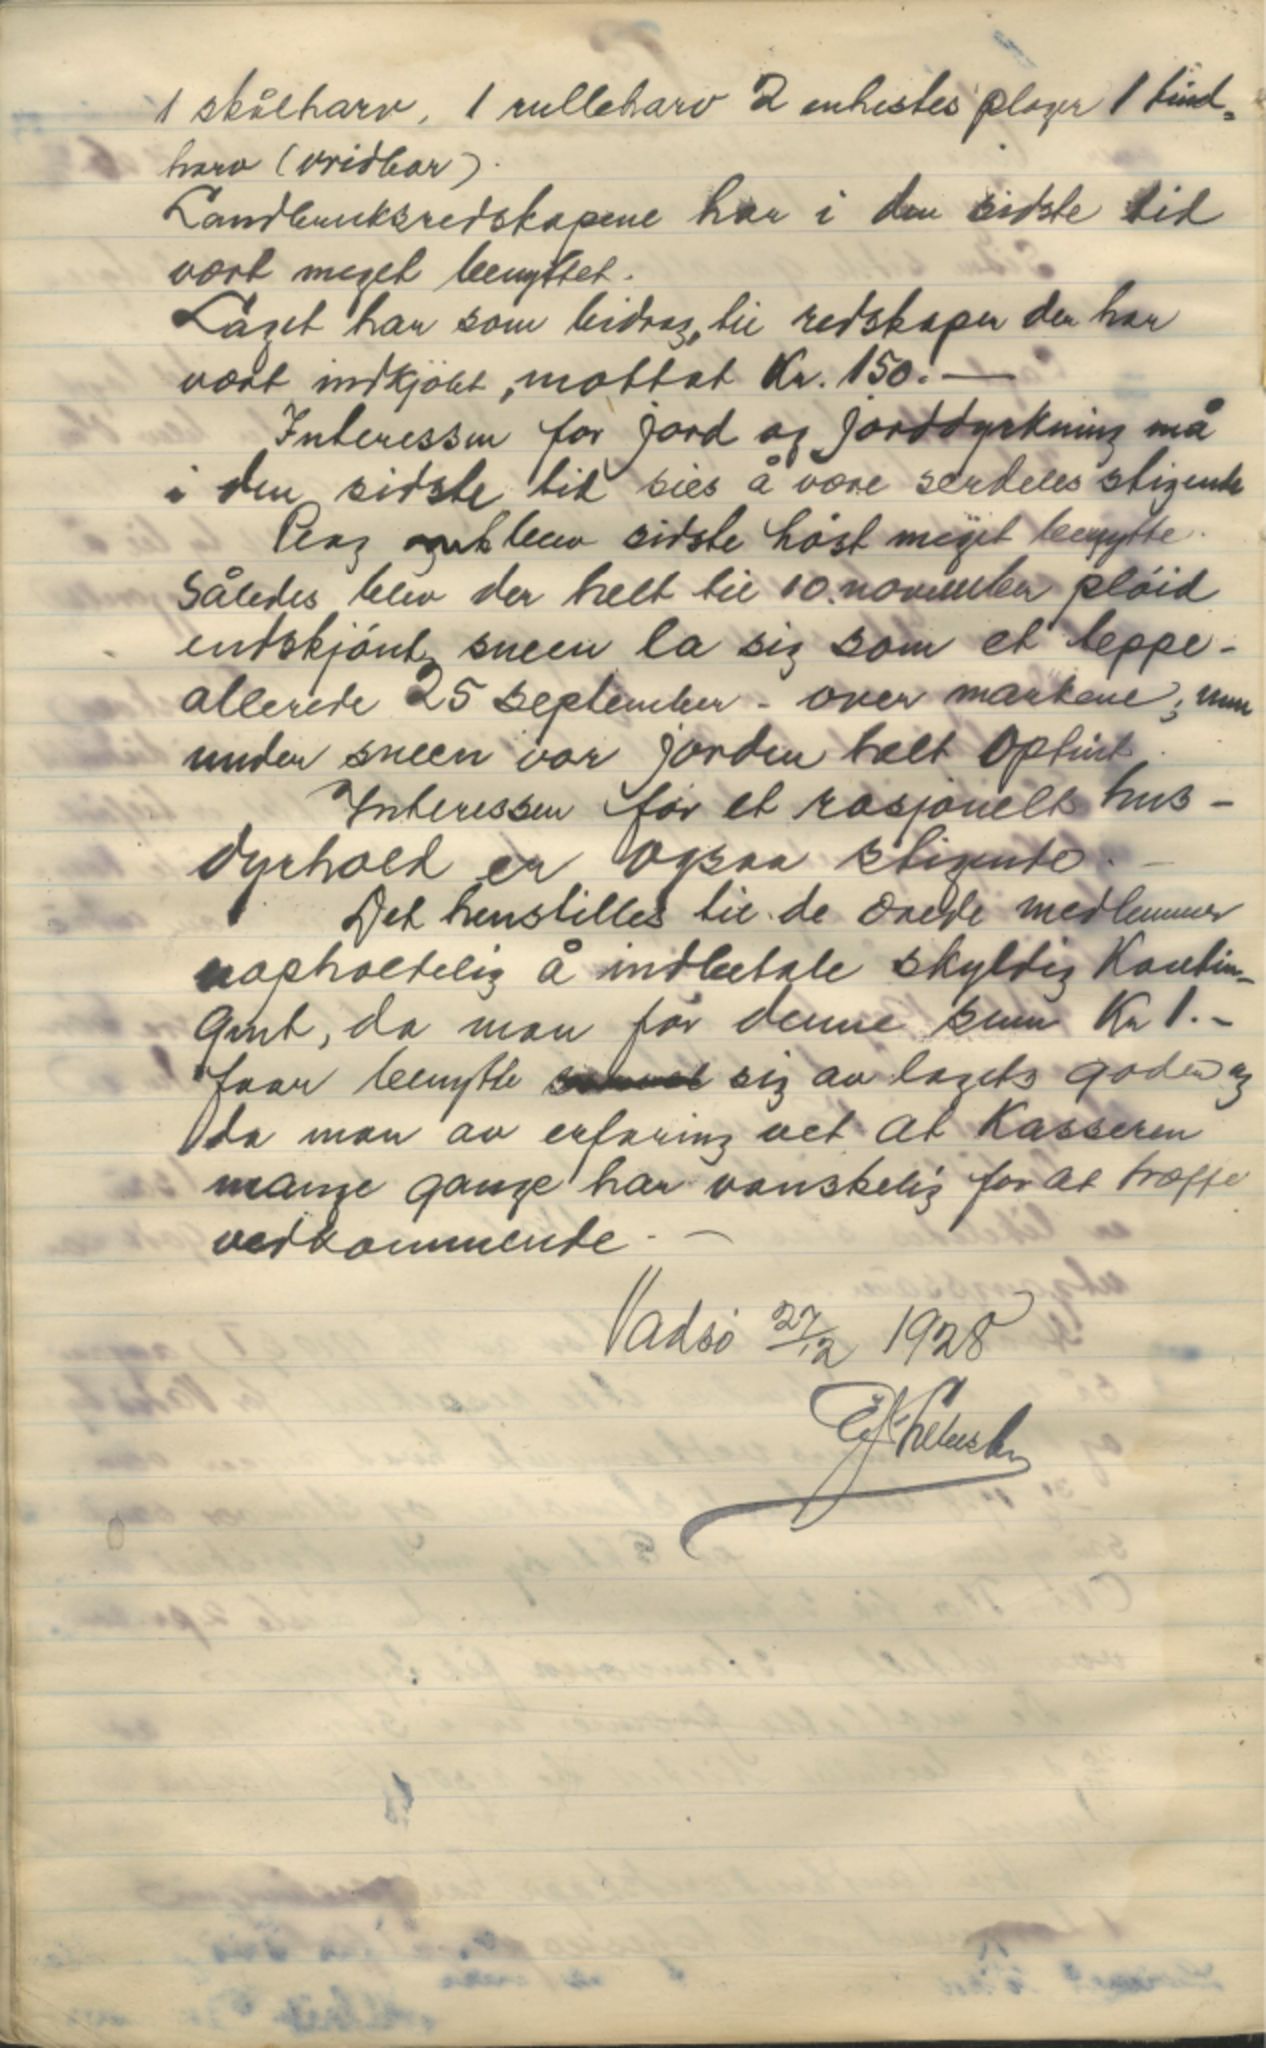 1 skålharv, 1 rulleharv 2 enhestes ploger 1 tind=
harv (vridbar).
Landbruksredskapene har i den sidste tid
vært meget benyttet.
Laget har som bidrag, til redskaper der har
vært indkjöbt, mottat Kr. 150.—
Interessen for jord og jorddyrkning må
i den sidste tid sies å være serdeles stigende
Plog blev sidste höst meget benytte.
Således blev der helt til 10. november plöid
endskjönt sneen la sig som et teppe -
allerede 25 september - over markene; men
under sneen var jorden helt optint.
Interessen for et rasjonelt hus-
dyrhold er ogsaa stigende. —
Det henstilles til de ærede medlemmer
uopholdelig å indbetale skyldig Kontin-
gent, da man for denne sum Kr 1.-
faar benytte sig av lagets goder og
da man av erfaring vet at Kasseren
mange gange har vanskelig for at træffe
vedkommende. —
Vadsö 27/12 1928